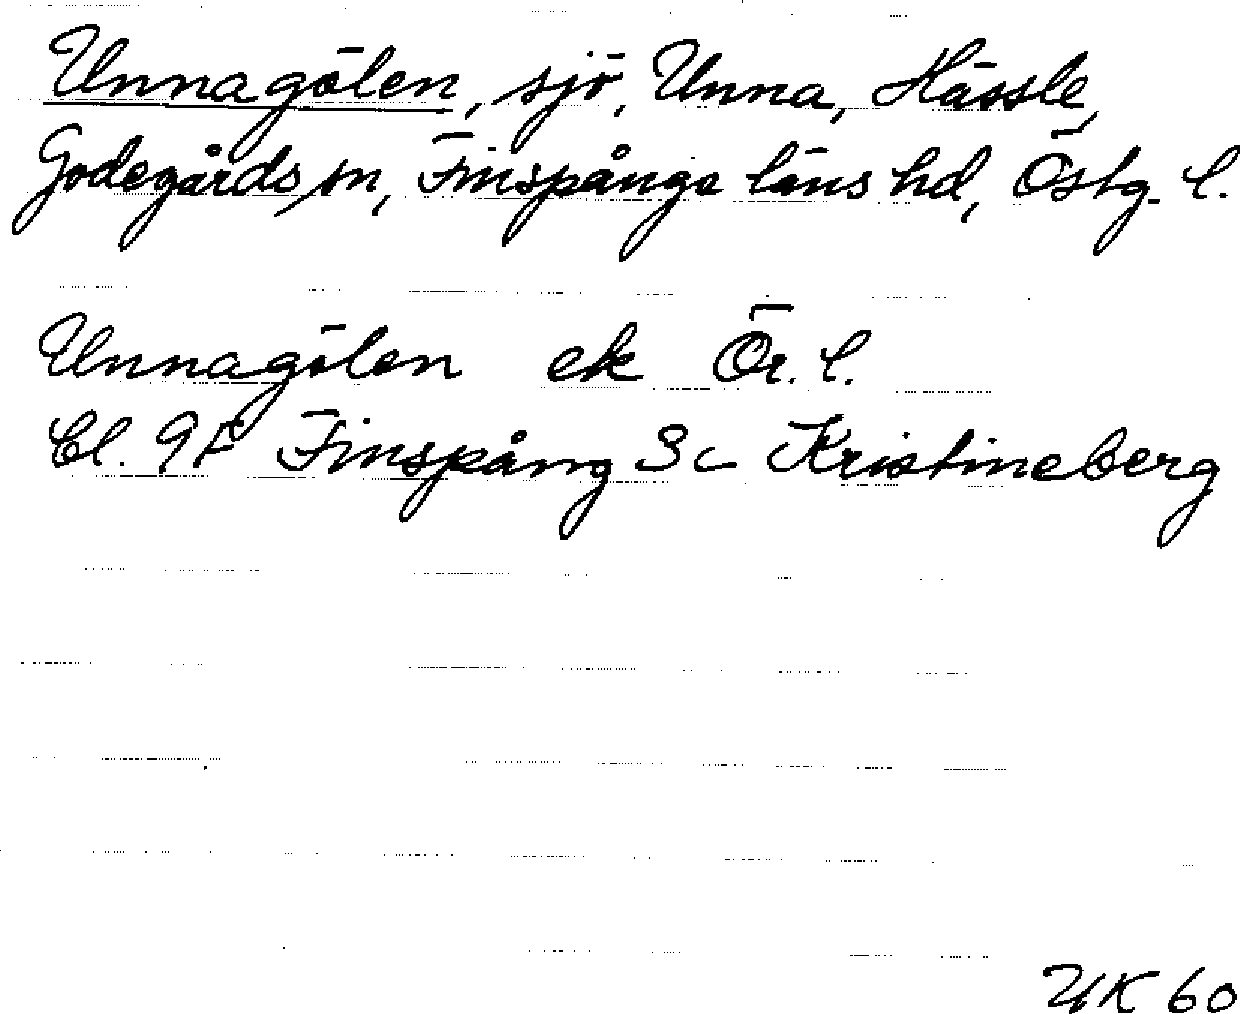 Unnagölen, sjö, Unna, Hässle,
Godegårds sn, Finspånga läns hd, Östg. l.
Unnagölen ek Ör. l.
Bl. 9F Finspång 3c Kristineberg
UK 60